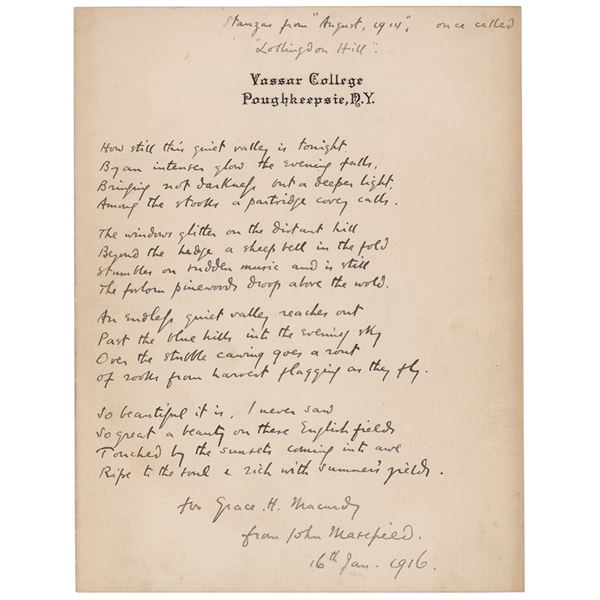 Stanzas from "August, 1914", once called
"Lollingdon Hill".
Vassar College
Poughkeepsie, N.Y.
How still this quiet valley is tonight.
By an intenser glow the evening falls,
Bringing not darkness but a deeper light,
Among the stooks a partridge covey calls.
The windows glitter on the distant hill
Beyond the hedge a sheep bell in the fold
Stumbles on sudden music and is still
The forlorn pinewoods droop above the wold.
An endless quiet valley reaches out
Past the blue hills into the evening sky
Over the stubble cawing goes a rout
of rooks from harvest flagging as they fly.
So beautiful it is, I never saw
So great a beauty on these English fields
Touched by the sunsets coming into awe
Ripe to the soul & rich with summer's yields.
for Grace. H. Macurdy
from John Masefield.
16th Jan. 1916.